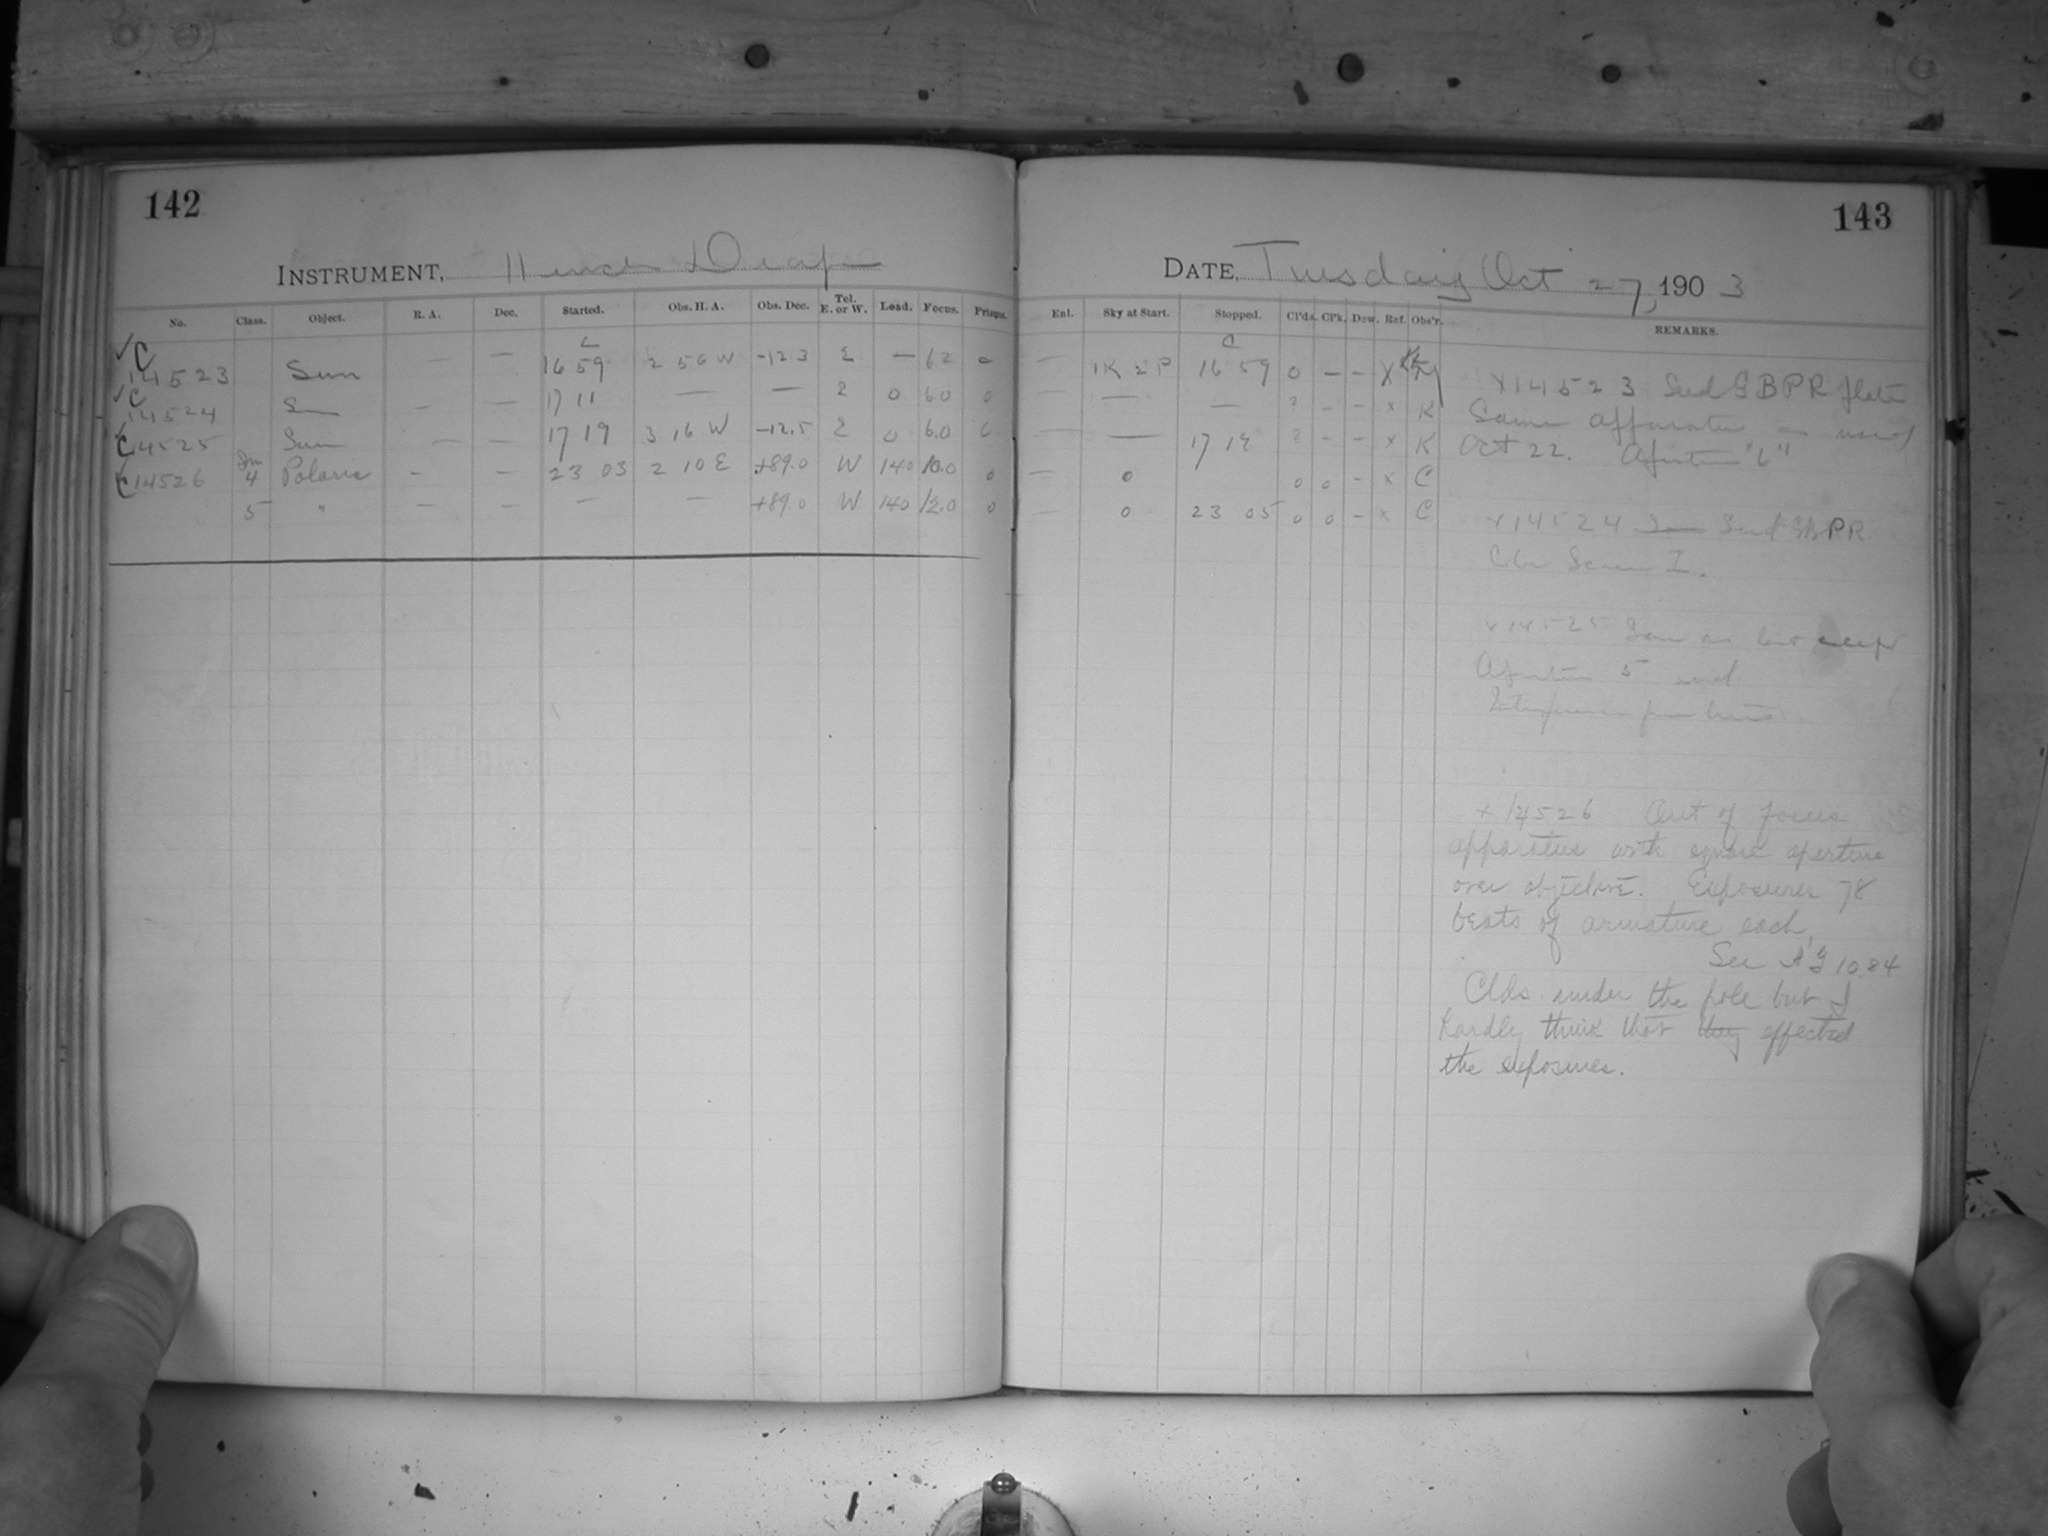 142
INSTRUMENT, 11 inch Draper
No. Class. Object. R. A. Dec. Started. Obs. H. A. Obs. Dec. Tel. E. or W. Lead. Focus. Prisms.
✓ C 14523 Sun — — 16 59 2 56 W -12 3 E — 6 2
✓ C 14524 Sun — — 17 11 — — E 0 6.0 0
C 14525 Sun — — 17 19 3 16 W -12.5 E 0 6.0
C 14526 4 Polaris - - 23 03 2 10 E +89.0 W 140 10.0 0
5 " — — — — +89.0 W 140 12.0 0
143
DATE, Tuesday Oct 27, 1903
Enl. Sky at Start. Stopped. Cl'ds. Cl'k. Dew. Ref. Obs'r. REMARKS.
— 1K 2P 16 59 0 - - X
— — — ? - - x K
— — 17 19 ? - - x K
— 0 0 0 - x C
— 0 23 05 0 0 - x C
x 14523 Seed G B P R plate
Same apparatus as used
Oct 22. Aperture "6"
x 14524 Seed PR
Screen I.
x 14525 Same as last except
Aperture 5 and
x 14526 Out of focus
apparatus with square aperture
over objective. Exposures 78
beats of armature each,
See 10.84
Clds. under the pole but I
hardly think that they effected
the exposures.